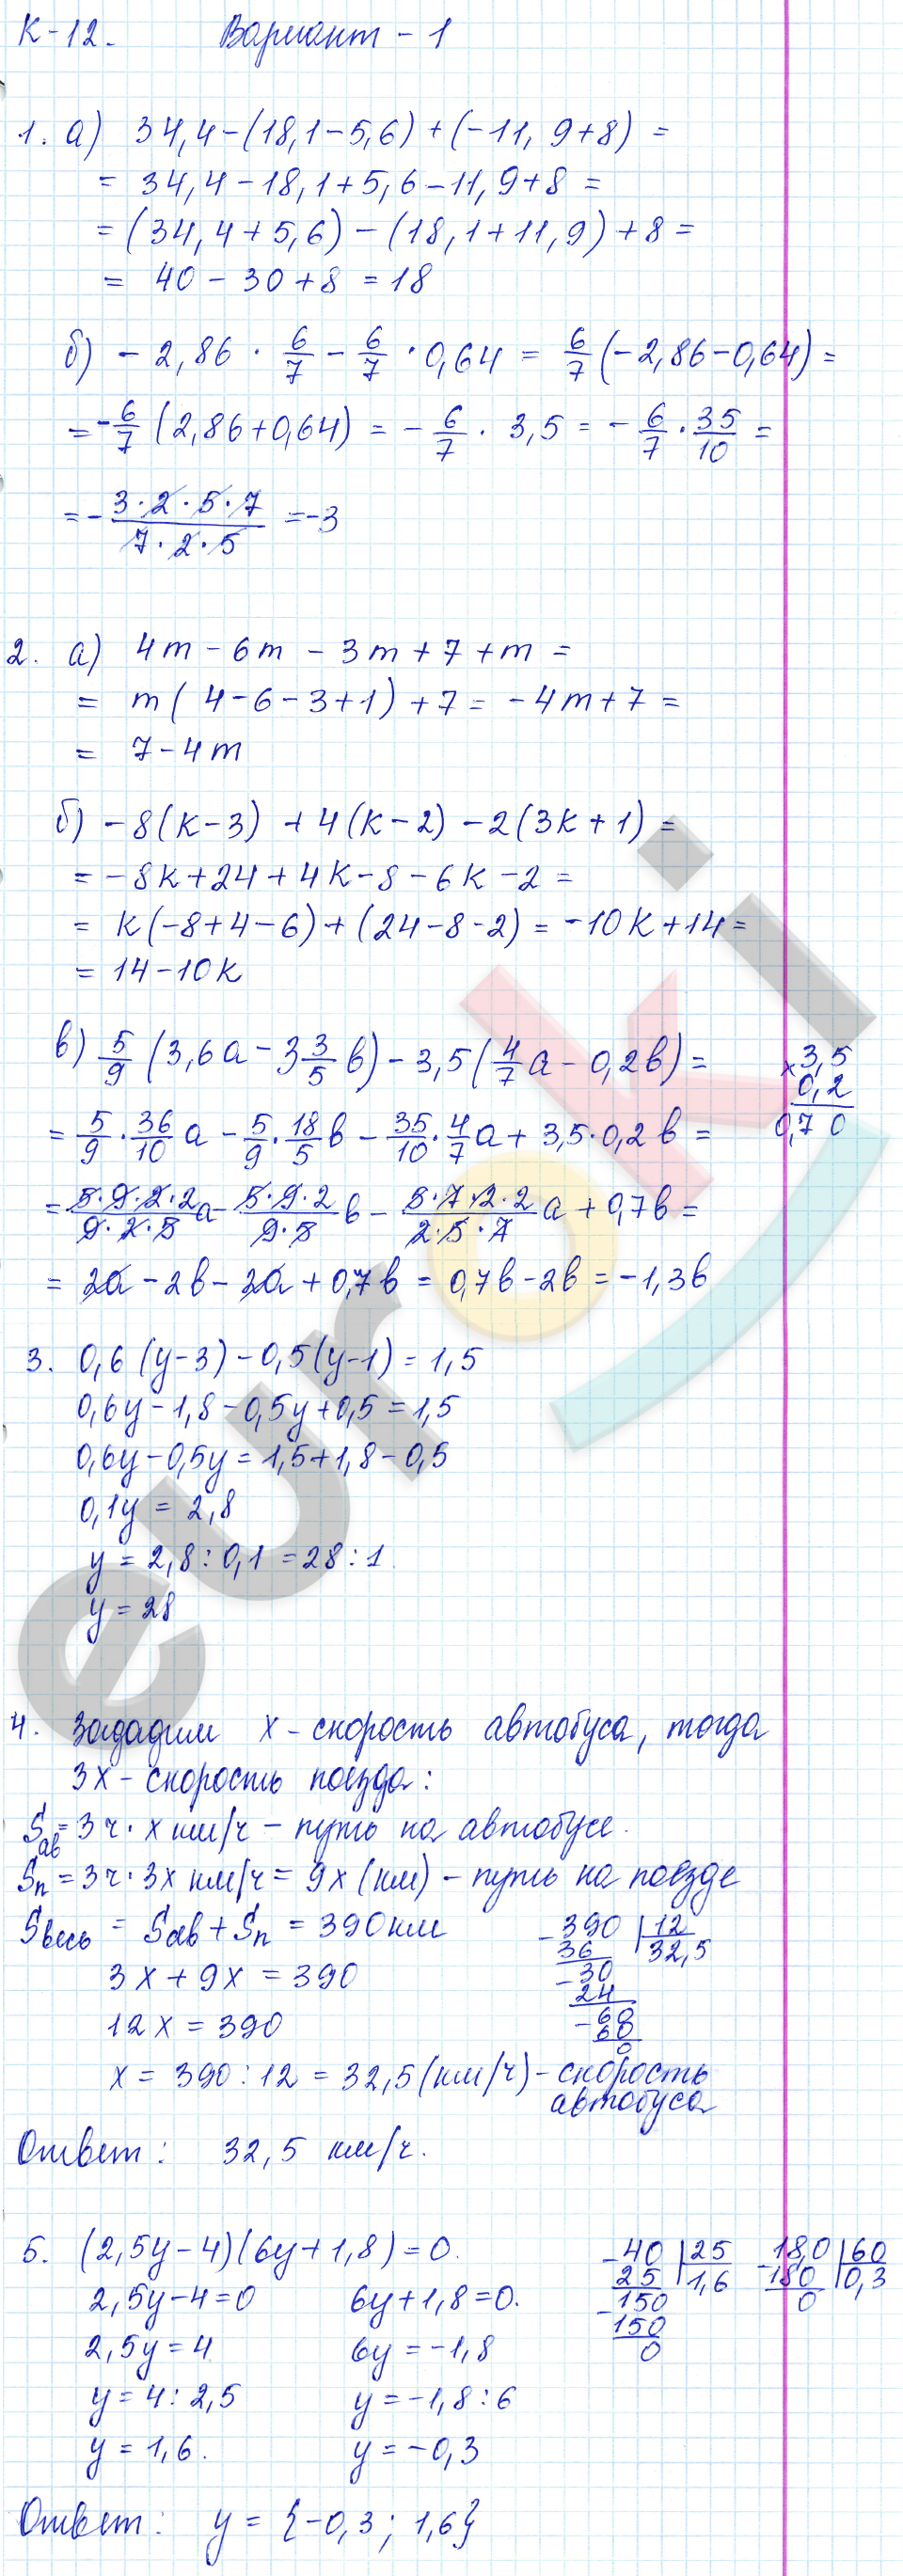 К-12. Вариант - 1
1. а) 34,4-(18,1-5,6)+(-11,9+8) =
= 34,4-18,1+5,6-11,9+8 =
= (34,4+5,6)-(18,1+11,9)+8 =
= 40-30+8 = 18
б) -2,86 · 6/7 - 6/7 · 0,64 = 6/7 (-2,86-0,64) =
= -6/7 (2,86+0,64) = - 6/7 · 3,5 = - 6/7 · 35/10 =
= - 3·2·5·7/7·2·5 = -3
2. а) 4m - 6m - 3m + 7 + m =
= m( 4-6-3+1) + 7 = -4m+7 =
= 7-4m
б) -8(к-3) + 4(к-2) - 2(3к+1) =
= -8к+24+4к-8-6к-2 =
= к(-8+4-6)+(24-8-2) = -10к+14 =
= 14-10к
в) 5/9 (3,6а - 3 3/5 в) - 3,5(4/7 а - 0,2в) =
× 3,5
0,2
0,70
= 5/9 · 36/10 а - 5/9 · 18/5 в - 35/10 · 4/7 а + 3,5·0,2в =
= 5·9·2·2/9·2·5 а - 5·9·2/9·5 в - 5·7·2·2/2·5·7 а + 0,7в =
= 2а - 2в - 2а + 0,7в = 0,7в - 2в = -1,3в
3. 0,6(y-3)-0,5(y-1) = 1,5
0,6y-1,8-0,5y+0,5 = 1,5
0,6y-0,5y = 1,5+1,8-0,5
0,1y = 2,8
y = 2,8 : 0,1 = 28 : 1
y = 28
4. Зададим х - скорость автобуса, тогда
3х - скорость поезда:
Sав = 3 ч · х км/ч - путь на автобусе.
Sп = 3ч · 3х км/ч = 9х (км) - путь на поезде
Sвесь = Sав + Sп = 390 км
3х + 9х = 390
12х = 390
х = 390 : 12 = 32,5 (км/ч) - скорость
автобуса
- 390 | 12
36 32,5
- 30
24
- 60
60
0
Ответ: 32,5 км/ч.
5. (2,5y-4)(6y+1,8) = 0.
2,5y-4=0 6y+1,8=0.
2,5y = 4 6y = -1,8
y = 4 : 2,5 y = -1,8 : 6
y = 1,6. y = -0,3
- 40 | 25
25 1,6
- 150
150
0
- 18,0 | 60
180 0,3
0
Ответ: y = {-0,3 ; 1,6}
euroki